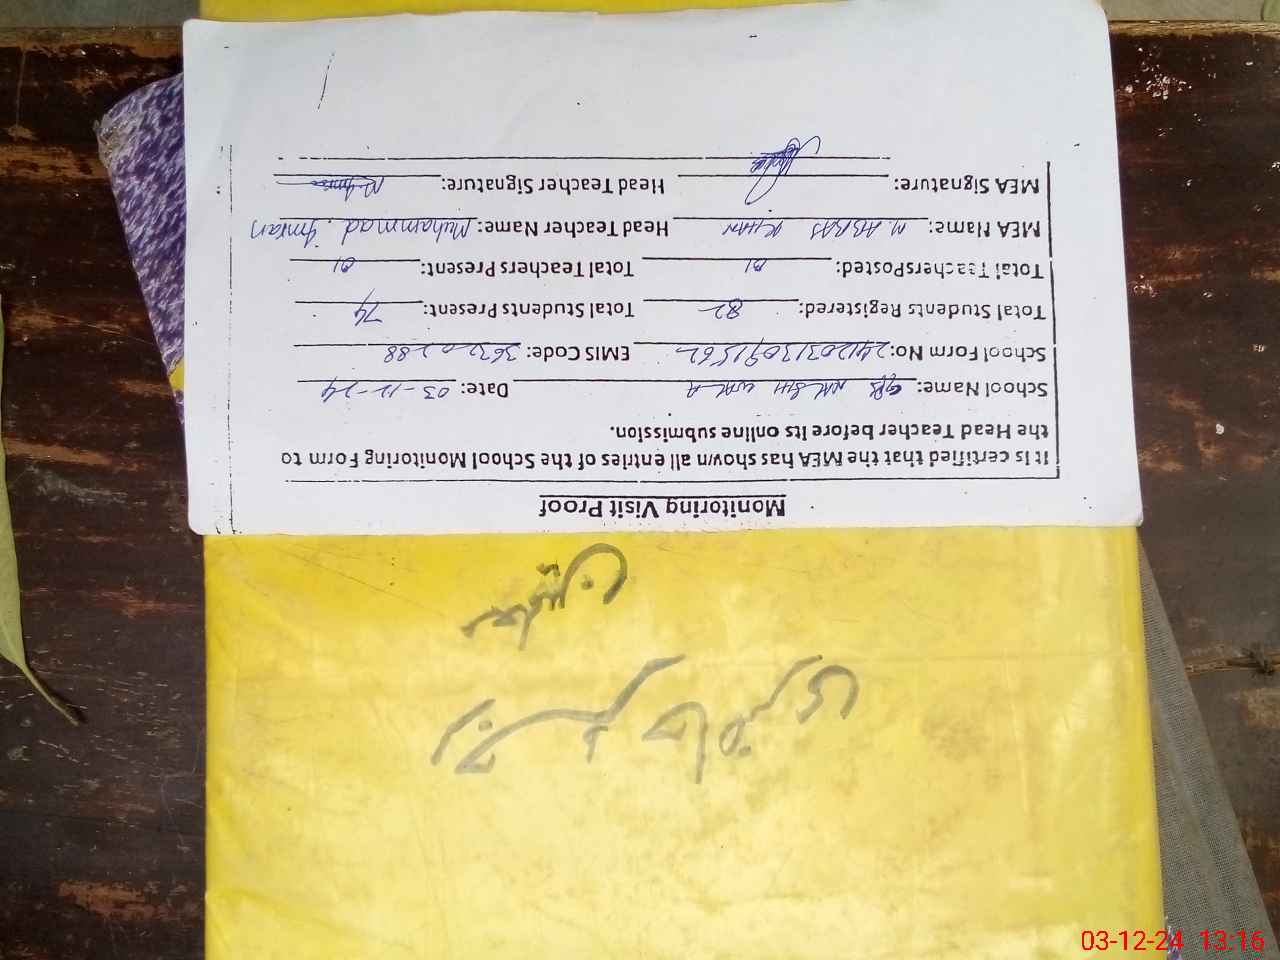 Monitoring Visit Proof
It is certified that the MEA has shown all entries of the School Monitoring Form to
the Head Teacher before its online submission.
School Name: GPS WALA Date: 03-12-24
School Form No: EMIS Code: 36320288
Total Students Registered: 82 Total Students Present: 74
Total TeachersPosted: 01 Total Teachers Present: 01
MEA Name: M. ABBAS KHAN Head Teacher Name: Muhammad Imran
MEA Signature: Head Teacher Signature:
03-12-24 13:16